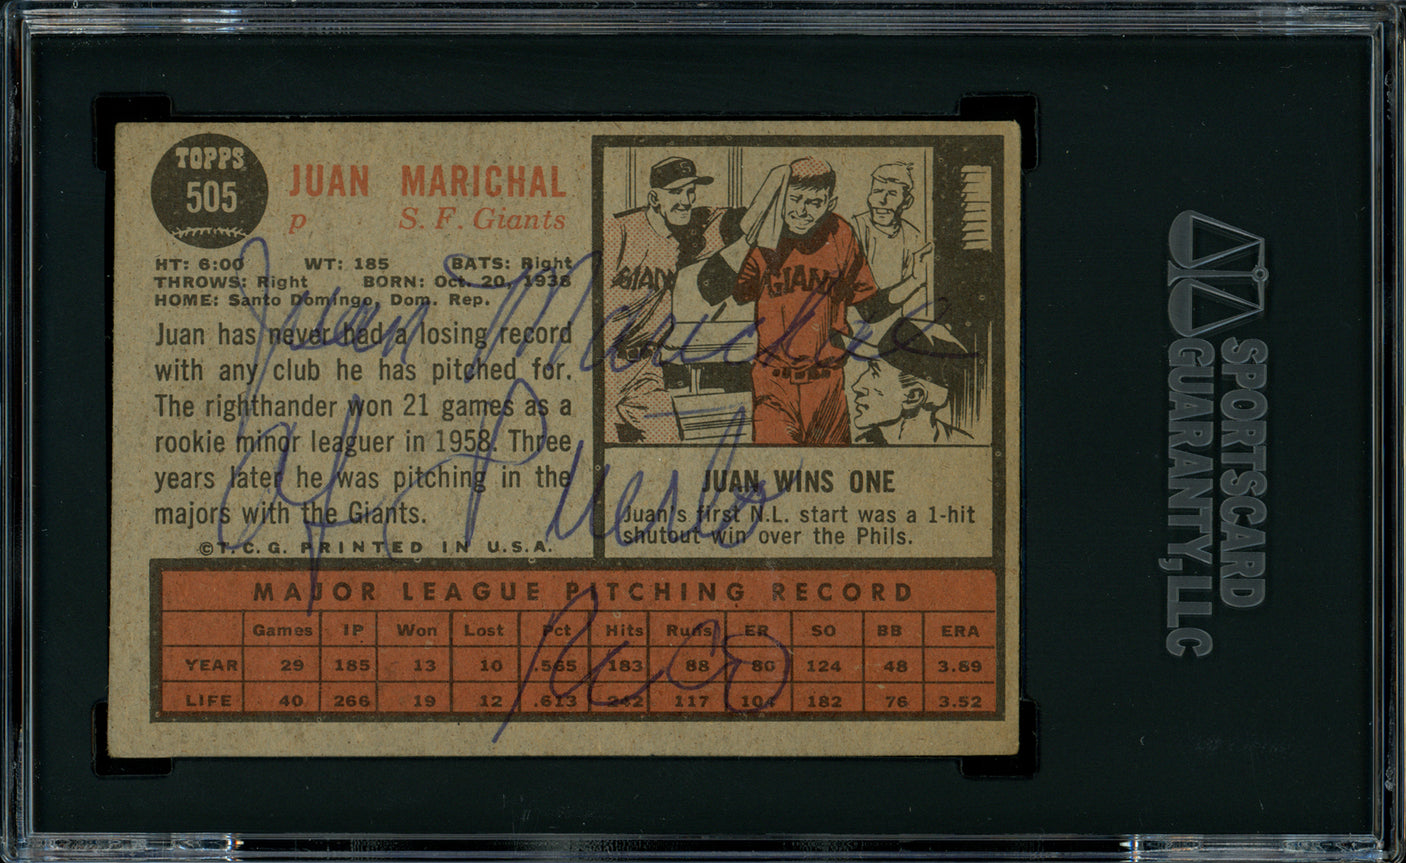 TOPPS
505
JUAN MARICHAL
p S. F. Giants
HT: 6:00 WT: 185 BATS: Right
THROWS: Right BORN: Oct. 20, 1938
HOME: Santo Domingo, Dom. Rep.
Juan has never had a losing record
with any club he has pitched for.
The righthander won 21 games as a
rookie minor leaguer in 1958. Three
years later he was pitching in the
majors with the Giants.
©T.C.G. PRINTED IN U.S.A.
GIAN
GIANT
JUAN WINS ONE
Juan's first N.L. start was a 1-hit
shutout win over the Phils.
MAJOR LEAGUE PITCHING RECORD
Games IP Won Lost Pct Hits Runs ER SO BB ERA
YEAR 29 185 13 10 .565 183 88 80 124 48 3.89
LIFE 40 266 19 12 .613 242 117 104 182 76 3.52
Juan Marichal
of Puerto
Rico
SPORTSCARD
GUARANTY, LLC